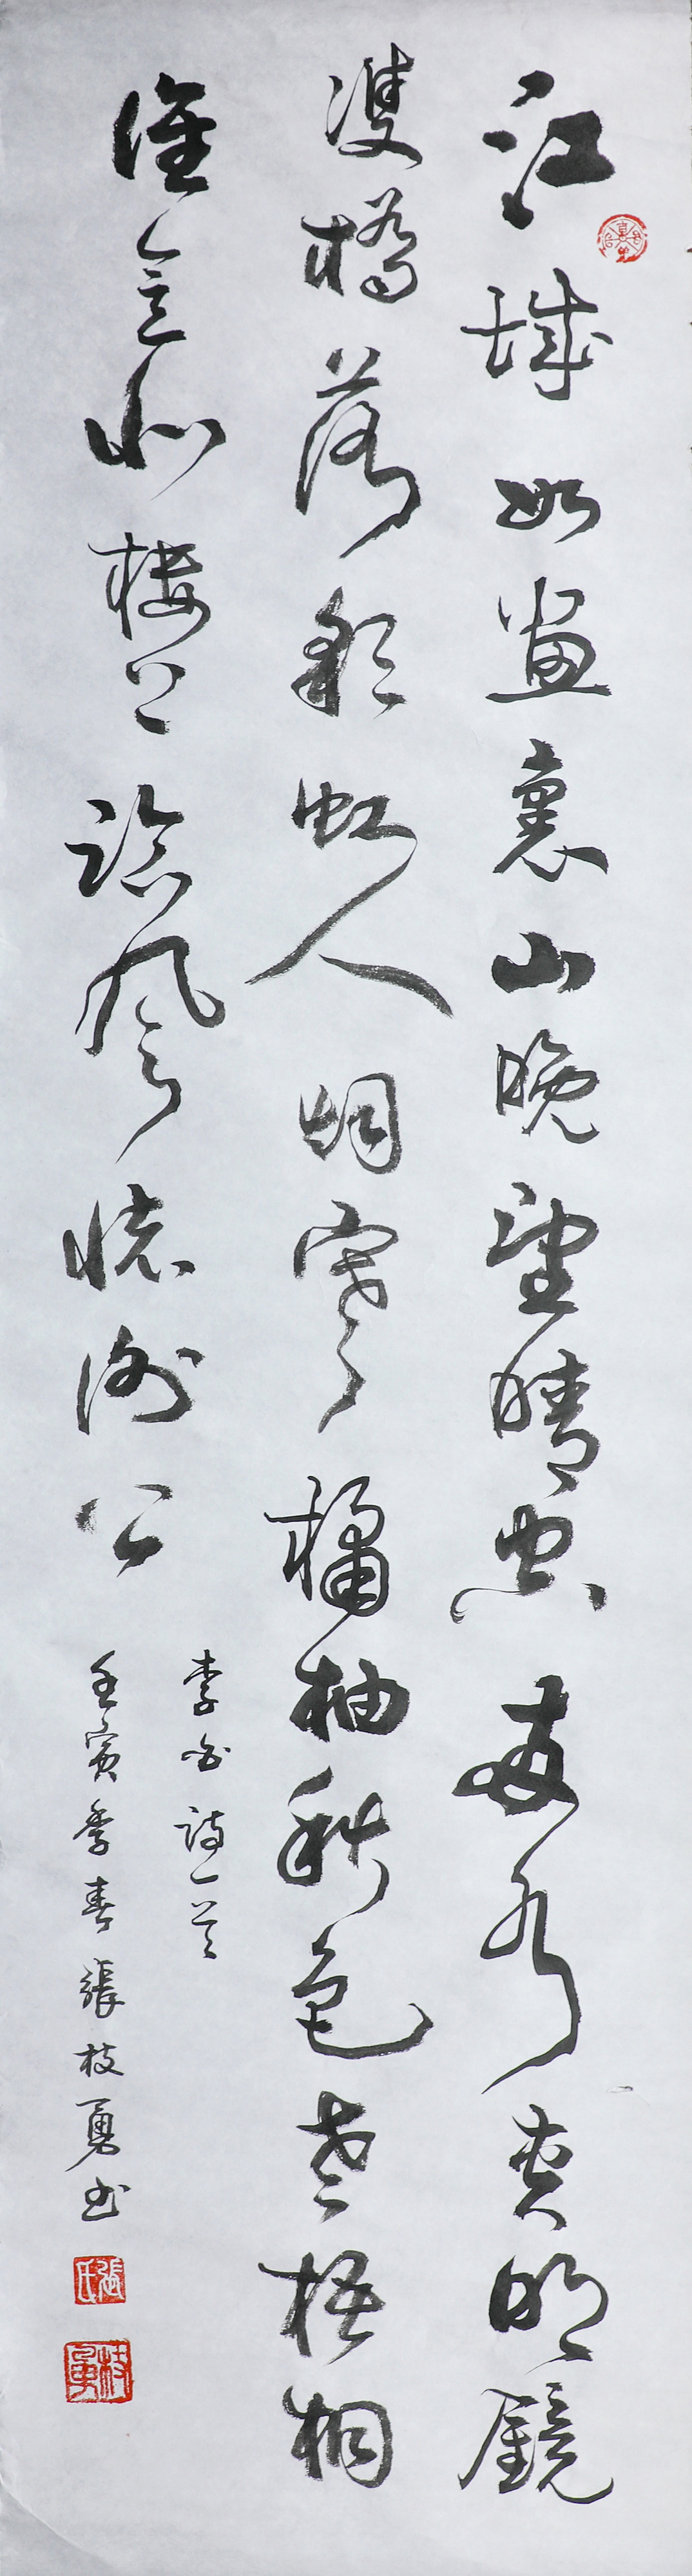 江城如畫裏山晚望晴空兩水夾明鏡
雙橋落彩虹人烟寒橘柚秋色老梧桐
誰念北樓上臨風懷謝公
李白詩一首
壬寅季春張枝勇書
張氏
枝勇